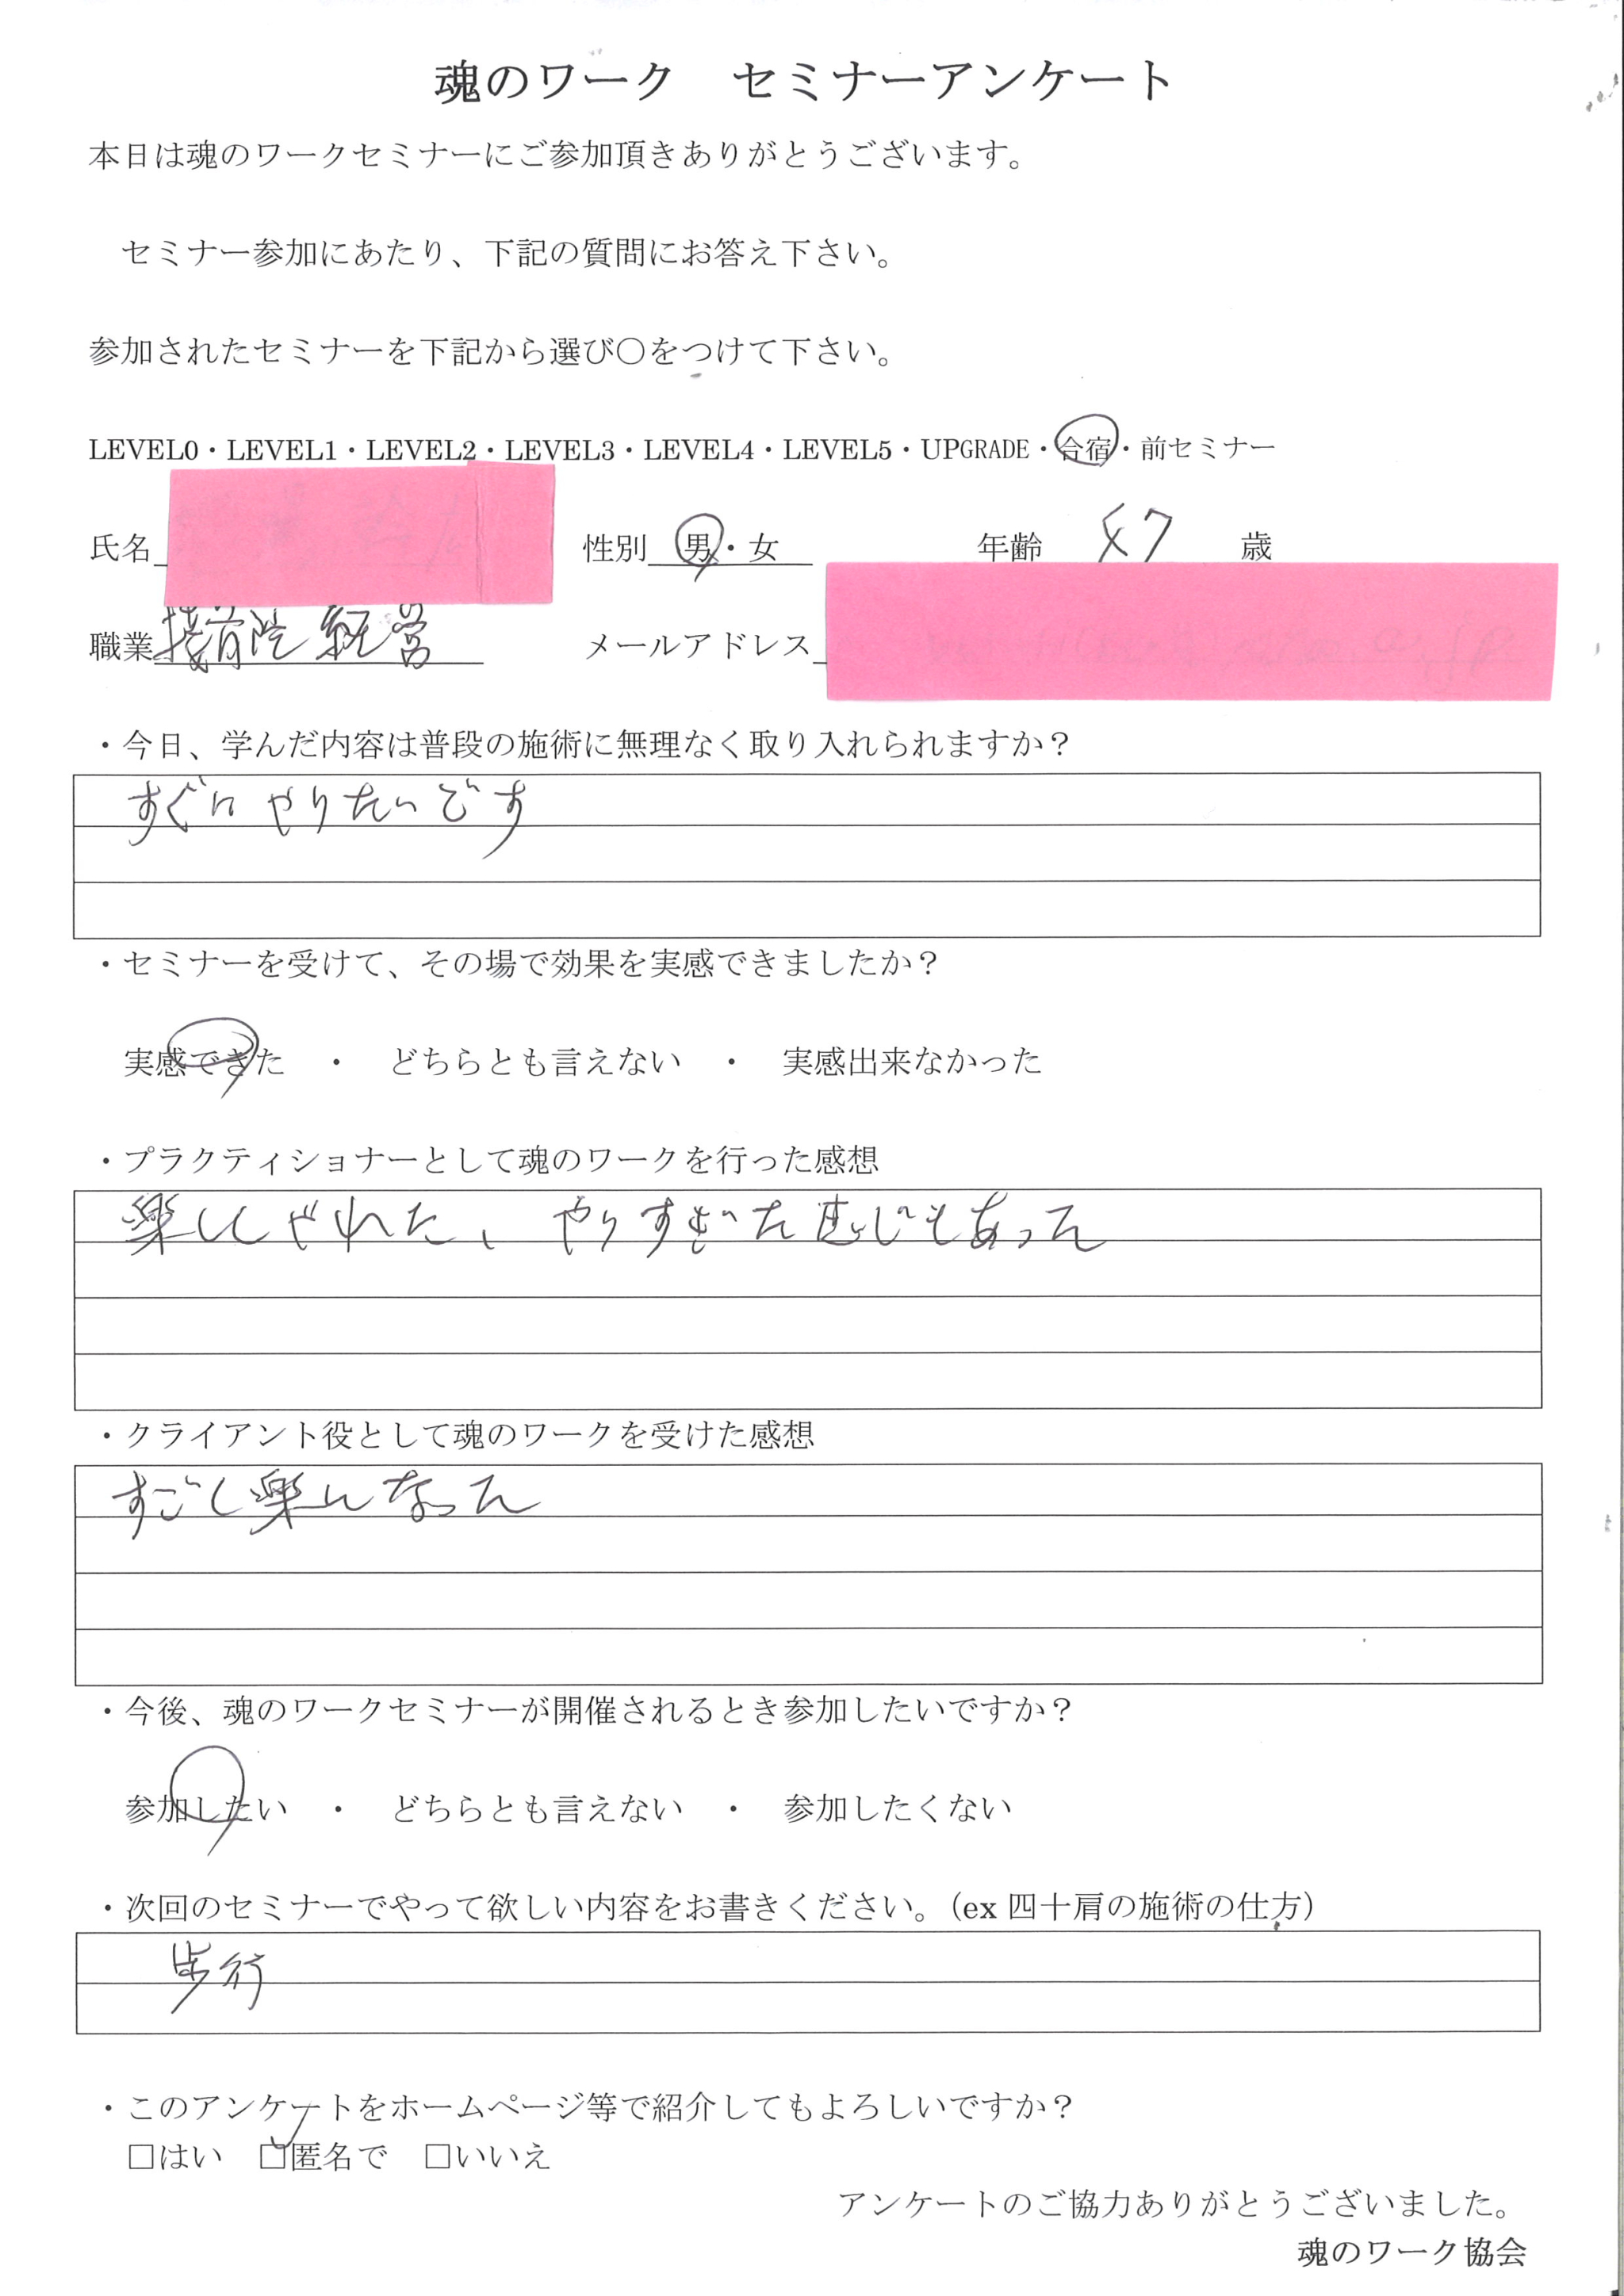 魂のワーク　セミナーアンケート
本日は魂のワークセミナーにご参加頂きありがとうございます。
セミナー参加にあたり、下記の質問にお答え下さい。
参加されたセミナーを下記から選び〇をつけて下さい。
LEVEL0・LEVEL1・LEVEL2・LEVEL3・LEVEL4・LEVEL5・UPGRADE・合宿・前セミナー
氏名 性別 男・女 年齢 47 歳
職業 接骨院経営 メールアドレス
・今日、学んだ内容は普段の施術に無理なく取り入れられますか？
すぐにやりたいです
・セミナーを受けて、その場で効果を実感できましたか？
実感できた　・　どちらとも言えない　・　実感出来なかった
・プラクティショナーとして魂のワークを行った感想
楽しくやれた、やりすぎた感じもあった
・クライアント役として魂のワークを受けた感想
すごく楽になった
・今後、魂のワークセミナーが開催されるとき参加したいですか？
参加したい　・　どちらとも言えない　・　参加したくない
・次回のセミナーでやって欲しい内容をお書きください。（ex 四十肩の施術の仕方）
歩行
・このアンケートをホームページ等で紹介してもよろしいですか？
□はい　□匿名で　□いいえ
アンケートのご協力ありがとうございました。
魂のワーク協会